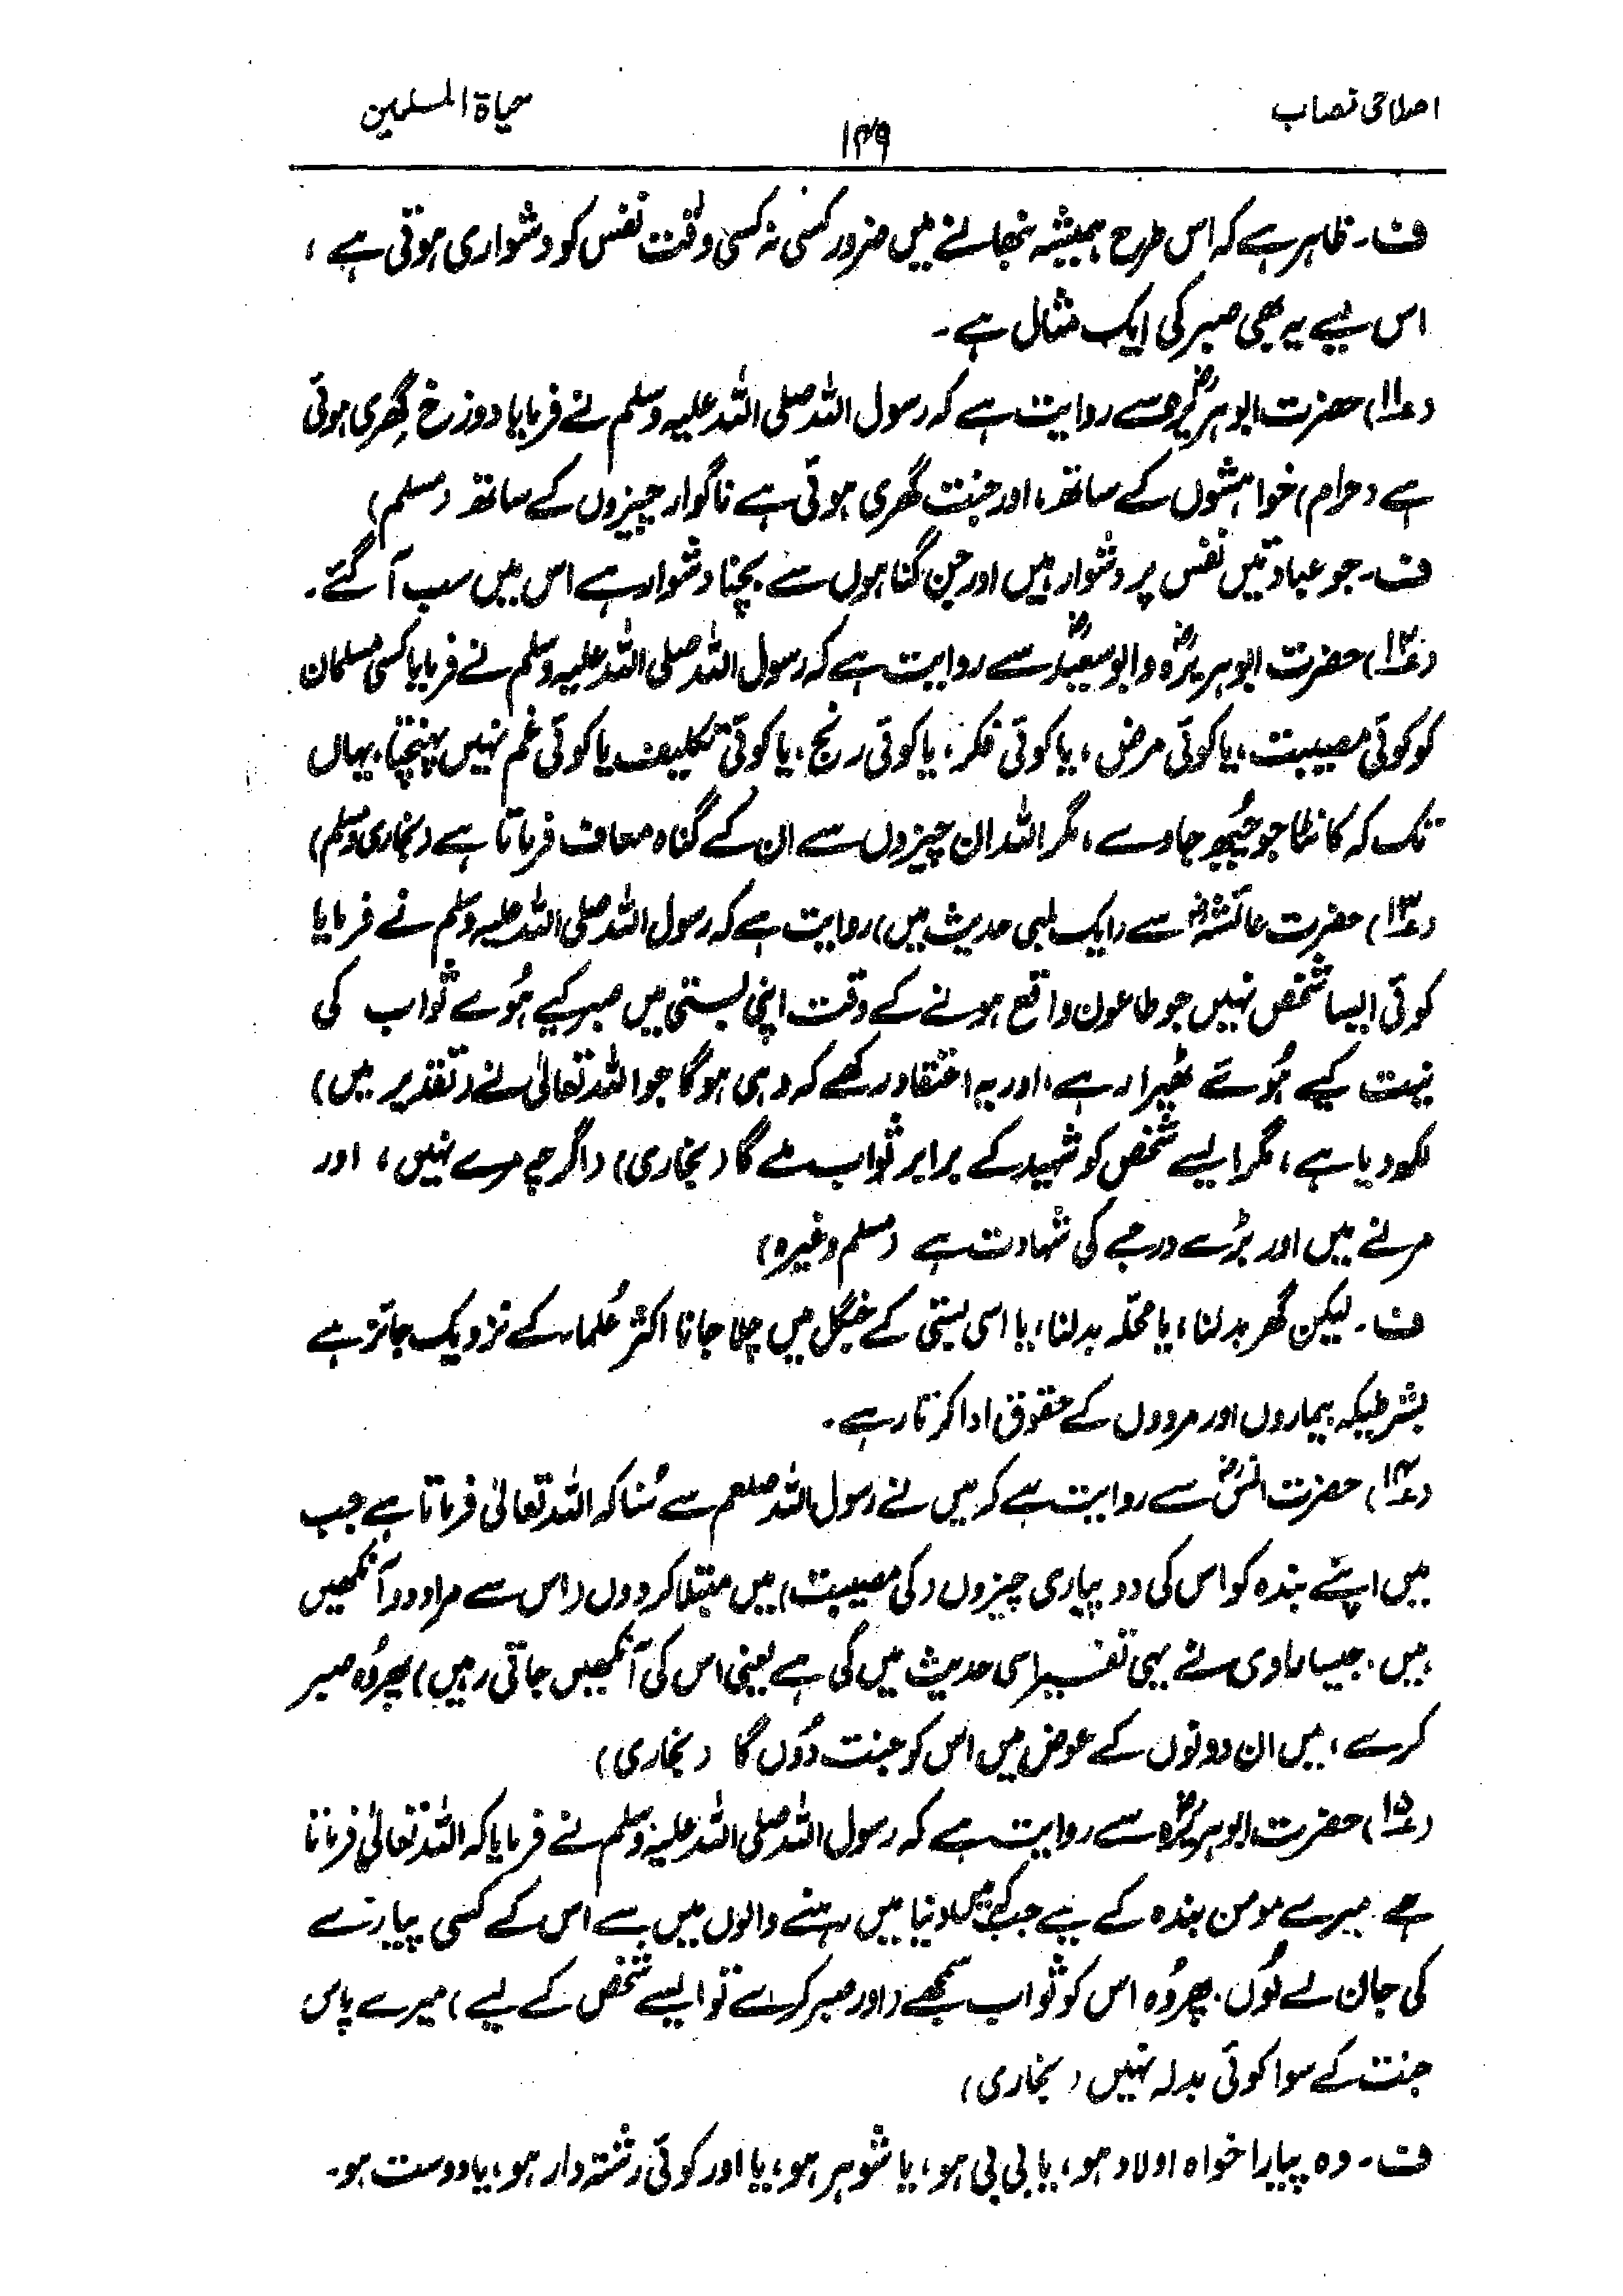 اصلاحی نصاب
۱۴۹
حیاة المسلمین
ف۔ ظاہر ہے کہ اس طرح ہمیشہ نبھانے میں ضرور کسی نہ کسی وقت نفس کو دشواری ہوتی ہے ،
اس لیے یہ بھی صبر کی ایک مثال ہے۔
(۱۱) حضرت ابوہریرہؓ سے روایت ہے کہ رسول اللہ صلی اللہ علیہ وسلم نے فرمایا دوزخ گھِری ہوئی
ہے (حرام) خواہشوں کے ساتھ، اور جنت گھری ہوئی ہے ناگوار چیزوں کے ساتھ (مسلم)
ف۔ جو عبادتیں نفس پر دشوار ہیں اور جن گناہوں سے بچنا دشوار ہے اس میں سب آگئے۔
(۱۲) حضرت ابوہریرہؓ و ابوسعیدؓ سے روایت ہے کہ رسول اللہ صلی اللہ علیہ وسلم نے فرمایا کسی مسلمان
کو کوئی مصیبت، یا کوئی مرض، یا کوئی فکر، یا کوئی رنج، یا کوئی تکلیف یا کوئی غم نہیں پہنچتا، یہاں
تک کہ کانٹا جو چُبھ جاوے، مگر اللہ ان چیزوں سے ان کے گناہ معاف فرماتا ہے (بخاری و مسلم)
(۱۳) حضرت عائشہؓ سے (ایک لمبی حدیث میں) روایت ہے کہ رسول اللہ صلی اللہ علیہ وسلم نے فرمایا
کوئی ایسا شخص نہیں جو طاعون واقع ہونے کے وقت اپنی بستی میں صبر کیے ہُوے ثواب کی
نیت کیے ہُوئے ٹھیرا رہے، اور یہ اعتقاد رکھے کہ وہی ہوگا جو اللہ تعالیٰ نے (تقدیر میں)
لکھ دیا ہے، مگر ایسے شخص کو شہید کے برابر ثواب ملے گا (بخاری) (اگرچہ مرے نہیں، اور
مرنے میں اور بڑے درجے کی شہادت ہے (مسلم وغیرہ)
ف۔ لیکن گھر بدلنا، یا محلّہ بدلنا، یا اسی بستی کے جنگل میں چلا جانا اکثر عُلماء کے نزدیک جائز ہے
بشرطیکہ بیماروں اور مردوں کے حقوق ادا کرتا رہے۔
(۱۴) حضرت انسؓ سے روایت ہے کہ میں نے رسول اللہ صلعم سے سُنا کہ اللہ تعالیٰ فرماتا ہے جب
میں اپنے بندہ کو اس کی دو پیاری چیزوں (کی مصیبت) میں مبتلا کر دوں (اس سے مراد دو آنکھیں
ہیں، جیسا راوی نے یہی تفسیر اسی حدیث میں کی ہے یعنی اس کی آنکھیں جاتی رہیں) پھر وُہ صبر
کرے، میں ان دونوں کے عوض میں اس کو جنت دُوں گا (بخاری)
(۱۵) حضرت ابوہریرہؓ سے روایت ہے کہ رسول اللہ صلی اللہ علیہ وسلم نے فرمایا کہ اللہ تعالیٰ فرماتا
ہے میرے مومن بندہ کے لیے جب کہ میں دنیا میں رہنے والوں میں سے اس کے کسی پیارے
کی جان لے لُوں، پھر وُہ اس کو ثواب سمجھے (اور صبر کرے تو ایسے شخص کے لیے) میرے پاس
جنت کے سوا کوئی بدلہ نہیں (بخاری)
ف۔ وہ پیارا خواہ اولاد ہو، یا بی بی ہو، یا شوہر ہو، یا اور کوئی رشتہ دار ہو، یا دوست ہو۔